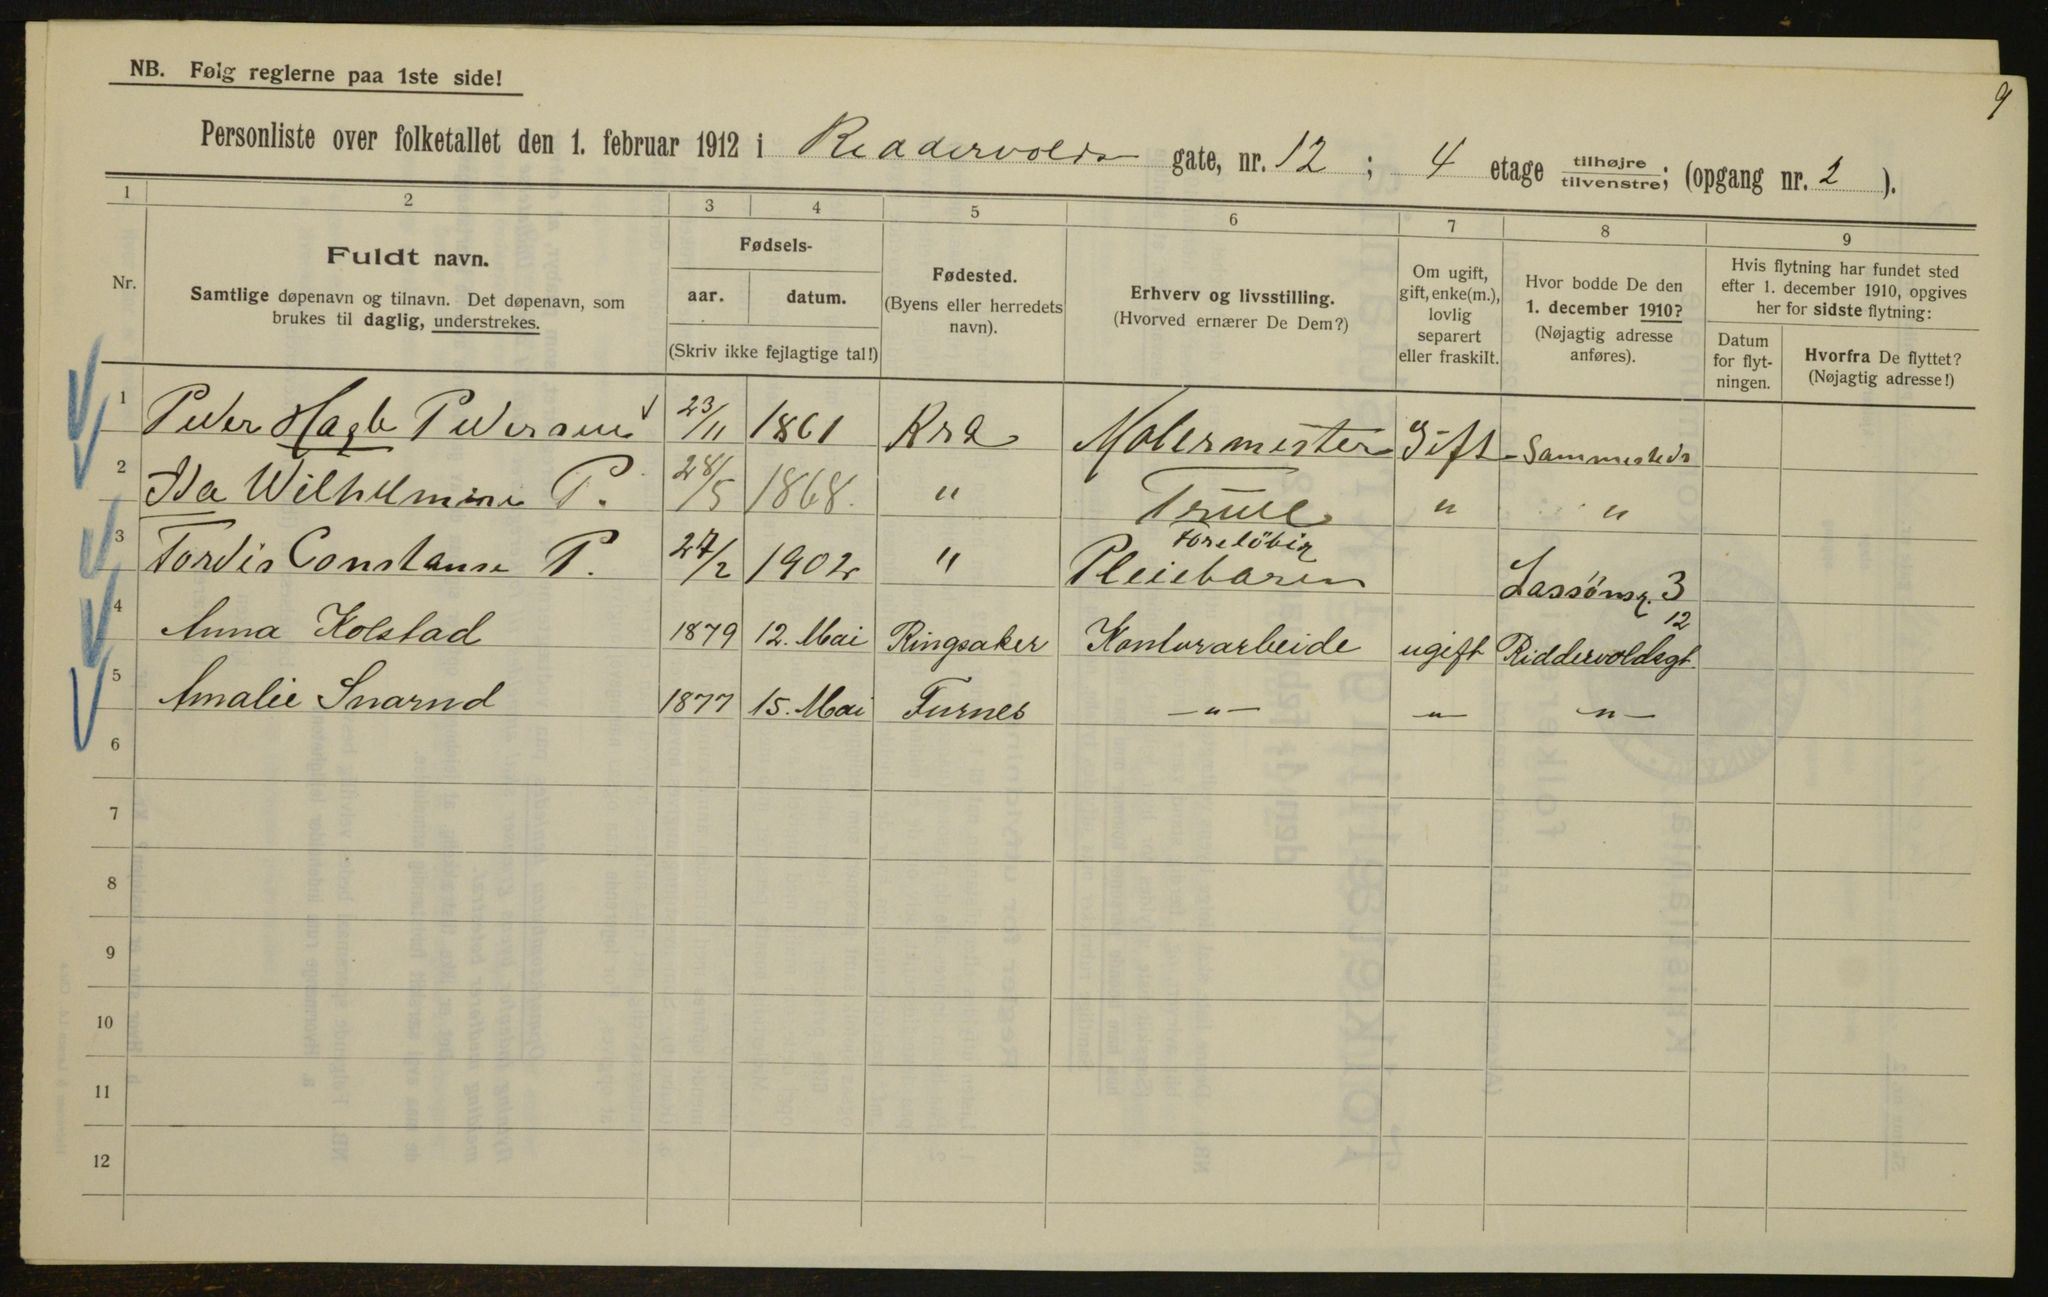 9
NB. Følg reglerne paa 1ste side!
Personliste over folketallet den 1. februar 1912 i Reddervolds gate, nr. 12 ; 4 etage tilhøjre tilvenstre; (opgang nr. 2 ).
1 2 3 4 5 6 7 8 9
Nr.
Fuldt navn.
Samtlige døpenavn og tilnavn. Det døpenavn, som
brukes til daglig, understrekes.
Fødsels-
aar. datum.
(Skriv ikke fejlagtige tal!)
Fødested.
(Byens eller herredets
navn).
Erhverv og livsstilling.
(Hvorved ernærer De Dem?)
Om ugift,
gift, enke(m.),
lovlig
separert
eller fraskilt.
Hvor bodde De den
1. december 1910?
(Nøjagtig adresse
anføres).
Hvis flytning har fundet sted
efter 1. december 1910, opgives
her for sidste flytning:
Datum
for flyt-
ningen.
Hvorfra De flyttet?
(Nøjagtig adresse!)
1 Peder Hagb Pedersen 23/11 1861 Kra Malermester Gift Sammesteds
2 Ida Wilhelmine P. 28/5 1868. " Frue " "
3 Tordis Constanse P. 27/2 1902 " foreløbig Pleiebarn Lassønsg. 3
4 Anna Kolstad 1879 12. Mai Ringsaker Kontorarbeide ugift Riddervoldsgt. 12
5 Amalie Snarud 1877 15. Mai Furnes —"— —"— —"—
6
7
8
9
10
11
12